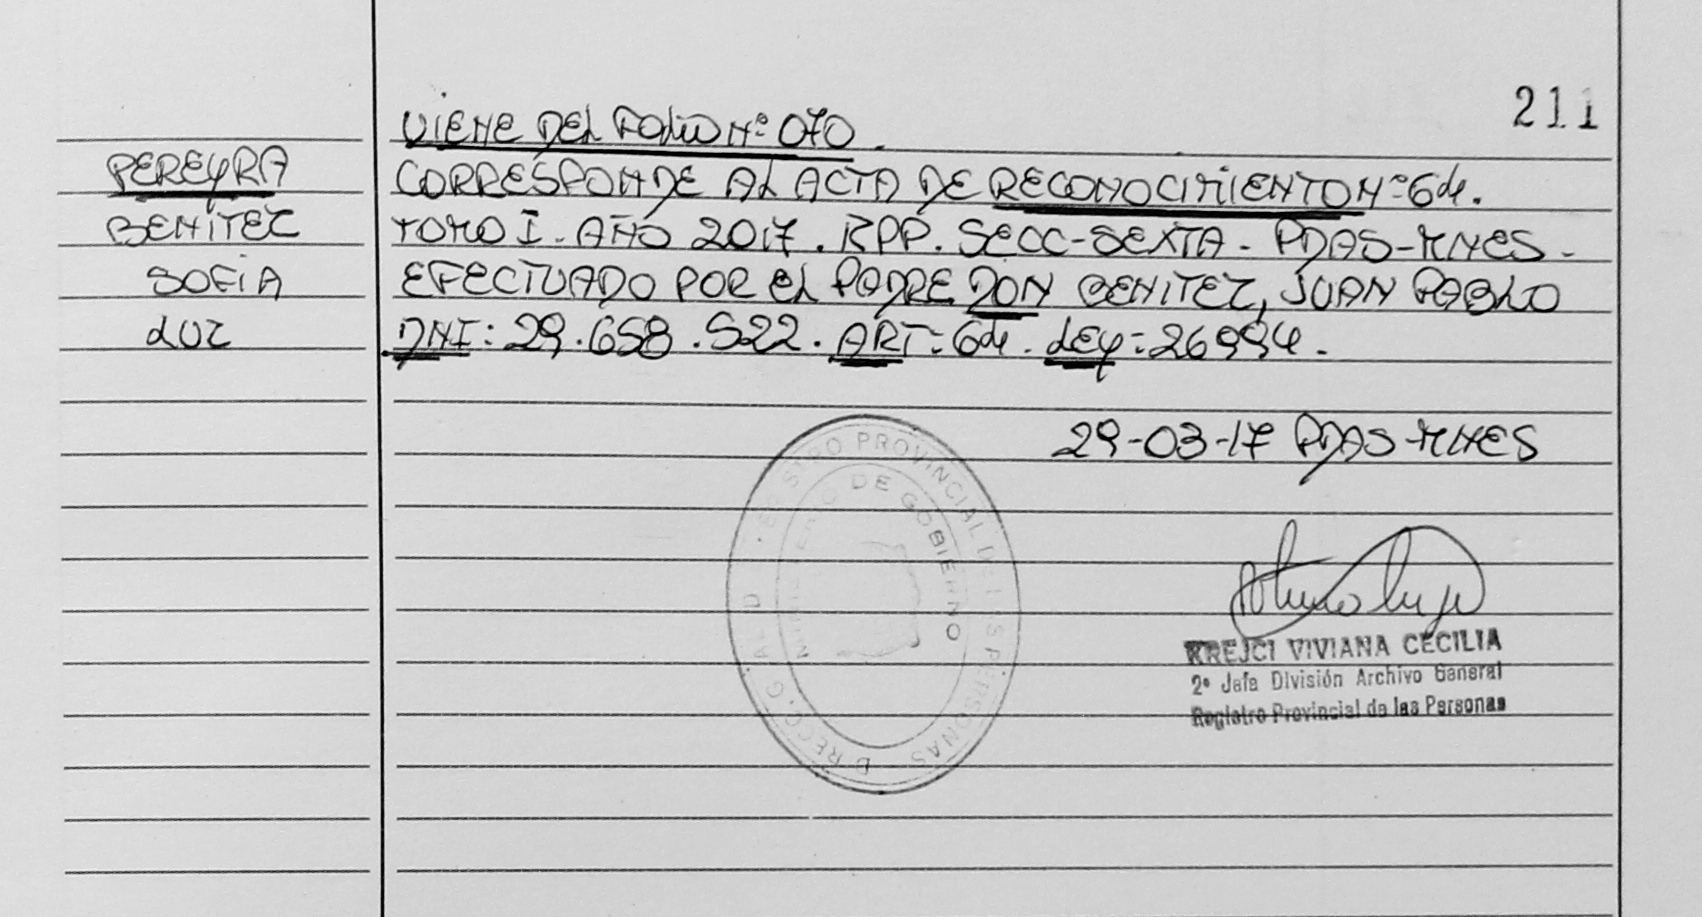 211
VIENE DEL FOLIO Nº 070.
PEREYRA
BENITEZ
SOFIA
LUZ
CORRESPONDE AL ACTA DE RECONOCIMIENTO Nº 64.
TOMO I. AÑO 2017. RPP. SECC-SEXTA. PDAS-MNES.
EFECTUADO POR EL PADRE DON BENITEZ, JUAN PABLO
DNI: 29.658.522. ART: 64. LEY: 26994.
29-03-17 PDAS-MNES
KREJCI VIVIANA CECILIA
2º Jefa División Archivo General
Registro Provincial de las Personas
PROVINCIAL DE LAS PERSONAS
DE GOBIERNO